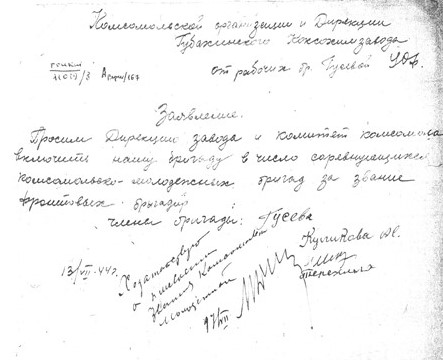 Комсомольской организации и Дирекции
Губахинского Коксохимзавода
от рабочих бр. Гусевой
Заявление.
Просим Дирекцию завода и комитет комсомола
включить нашу бригаду в число соревнующихся
комсомольско-молодежных бригад за звание
фронтовых бригадир
члены бригады: Гусева
Куликова
13/VII-44г.
Ходатайствую
о присвоении
звания